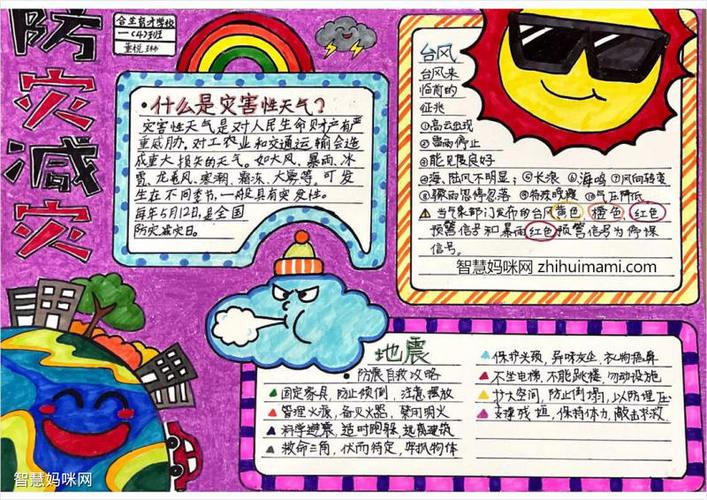 防灾减灾
合生育才学校
一(4)班
董悦琳
•什么是灾害性天气?
灾害性天气是对人民生命财产有严
重威胁,对工农业和交通运输会造
成重大损失的天气。如大风、暴雨、冰
雹、龙卷风、寒潮、霜冻、大雾等。可发
生在不同季节,一般具有突发性。
每年5月12日是全国
防灾减灾日。
台风
台风来
临前的
征兆
①高云出现
②雷雨停止
③能见度良好
④海、陆风不明显;⑤长浪 ⑥海鸣 ⑦风向转变
⑧骤雨忽停忽落 ⑨特殊晚霞 ⑩气压降低
当气象部门发布的台风黄色 橙色 红色
预警信号和暴雨红色预警信号为停课
信号。
智慧妈咪网 zhihuimami.com
地震
•防震自救攻略
固定家具,防止倾倒,注意摆放
管理火源,备灭火器,禁用明火
科学避震,适时跑躲,远离建筑
救命三角,伏而待定,牢抓物体
保护头颈,异味灰尘,衣物捂鼻
不坐电梯,不能跳楼,勿动设施
扩大空间,防止倒塌,以防埋压
支撑残垣,保持体力,敲击求救
智慧妈咪网